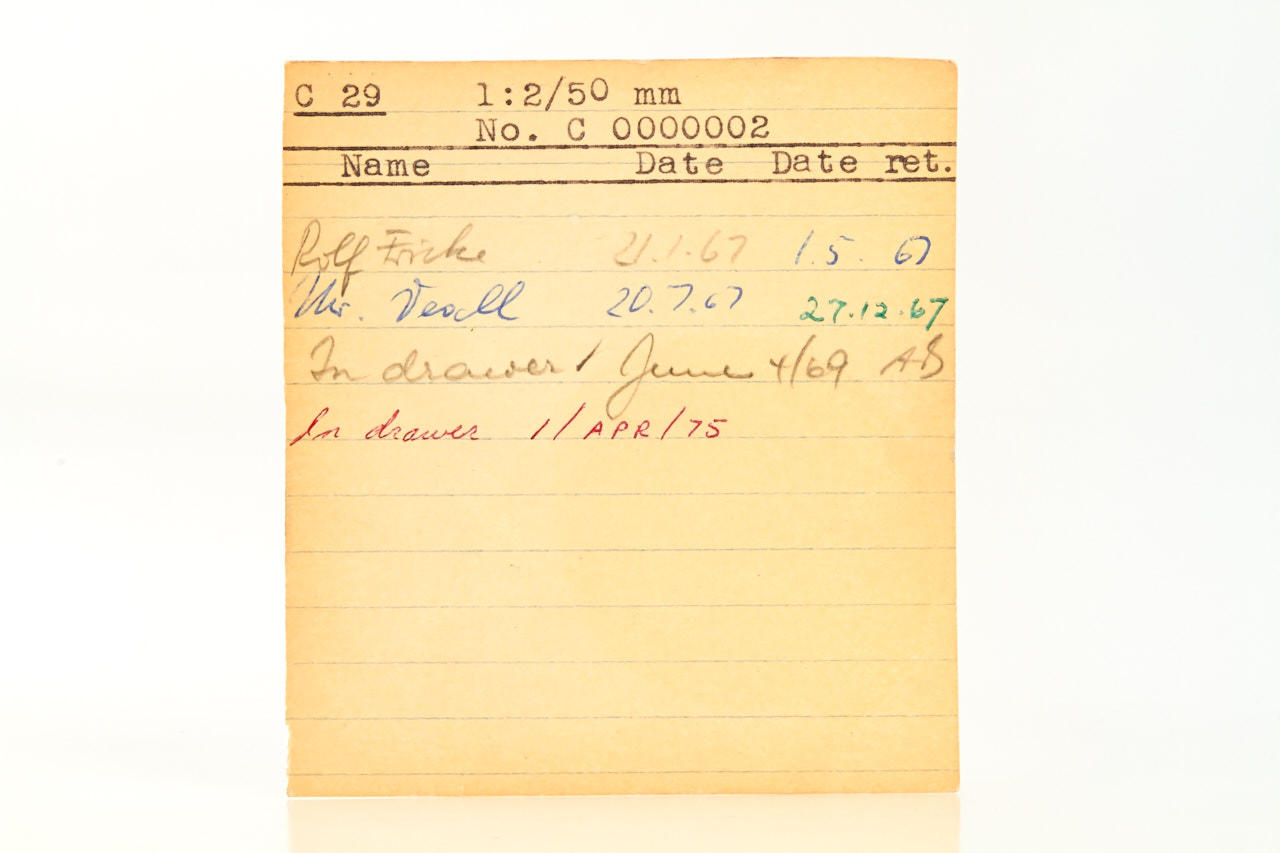 C 29 1:2/50 mm
No. C 0000002
Name Date Date ret.
Rolf Fricke 21.1.67 1.5. 67
Mr. 20.7.67 27.12.67
In drawer! June 4/69 AB
In drawer 1/APR/75